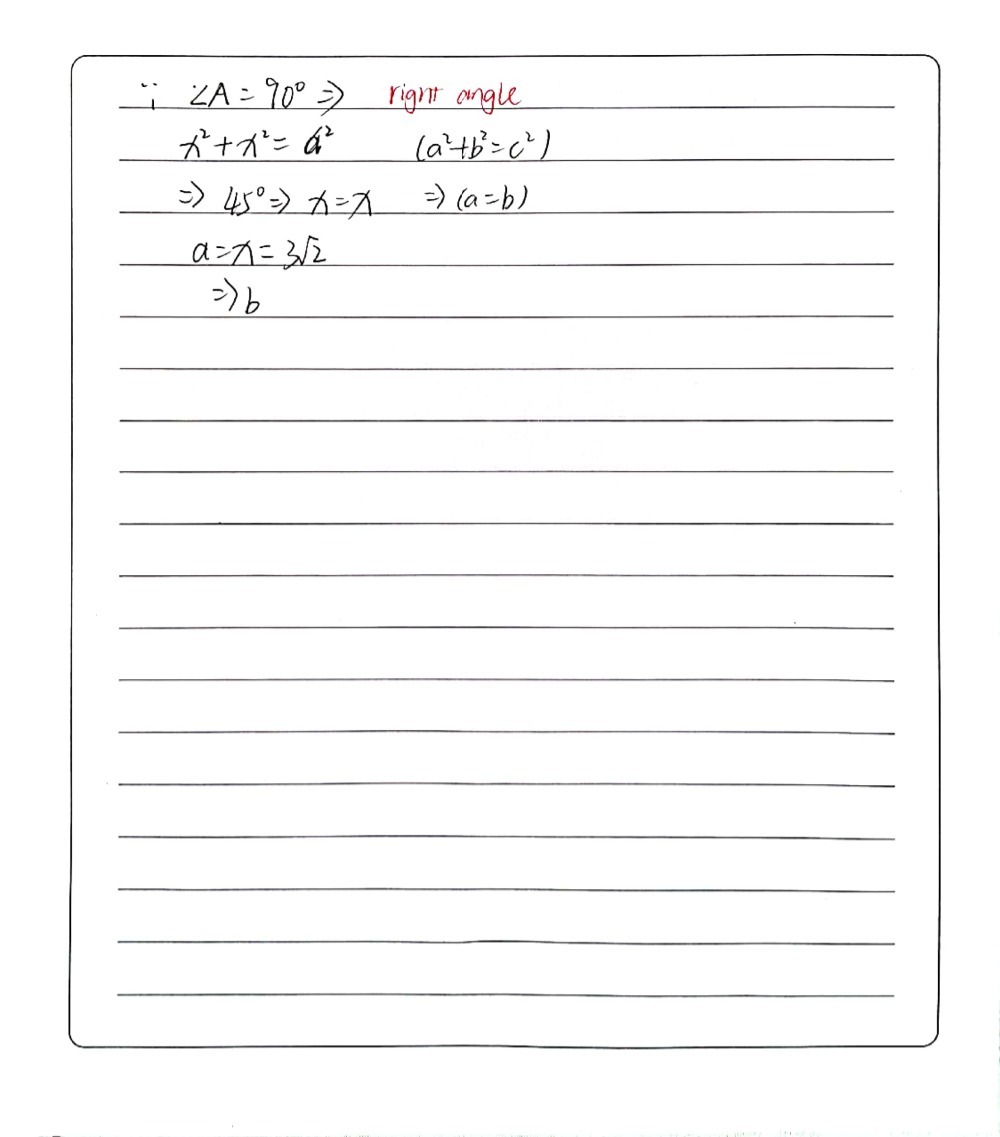 ∵ ∠A = 90° ⇒ right angle
x² + x² = a² (a²+b²=c²)
⇒ 45° ⇒ x = x ⇒ (a=b)
a = x = 3√2
⇒ b